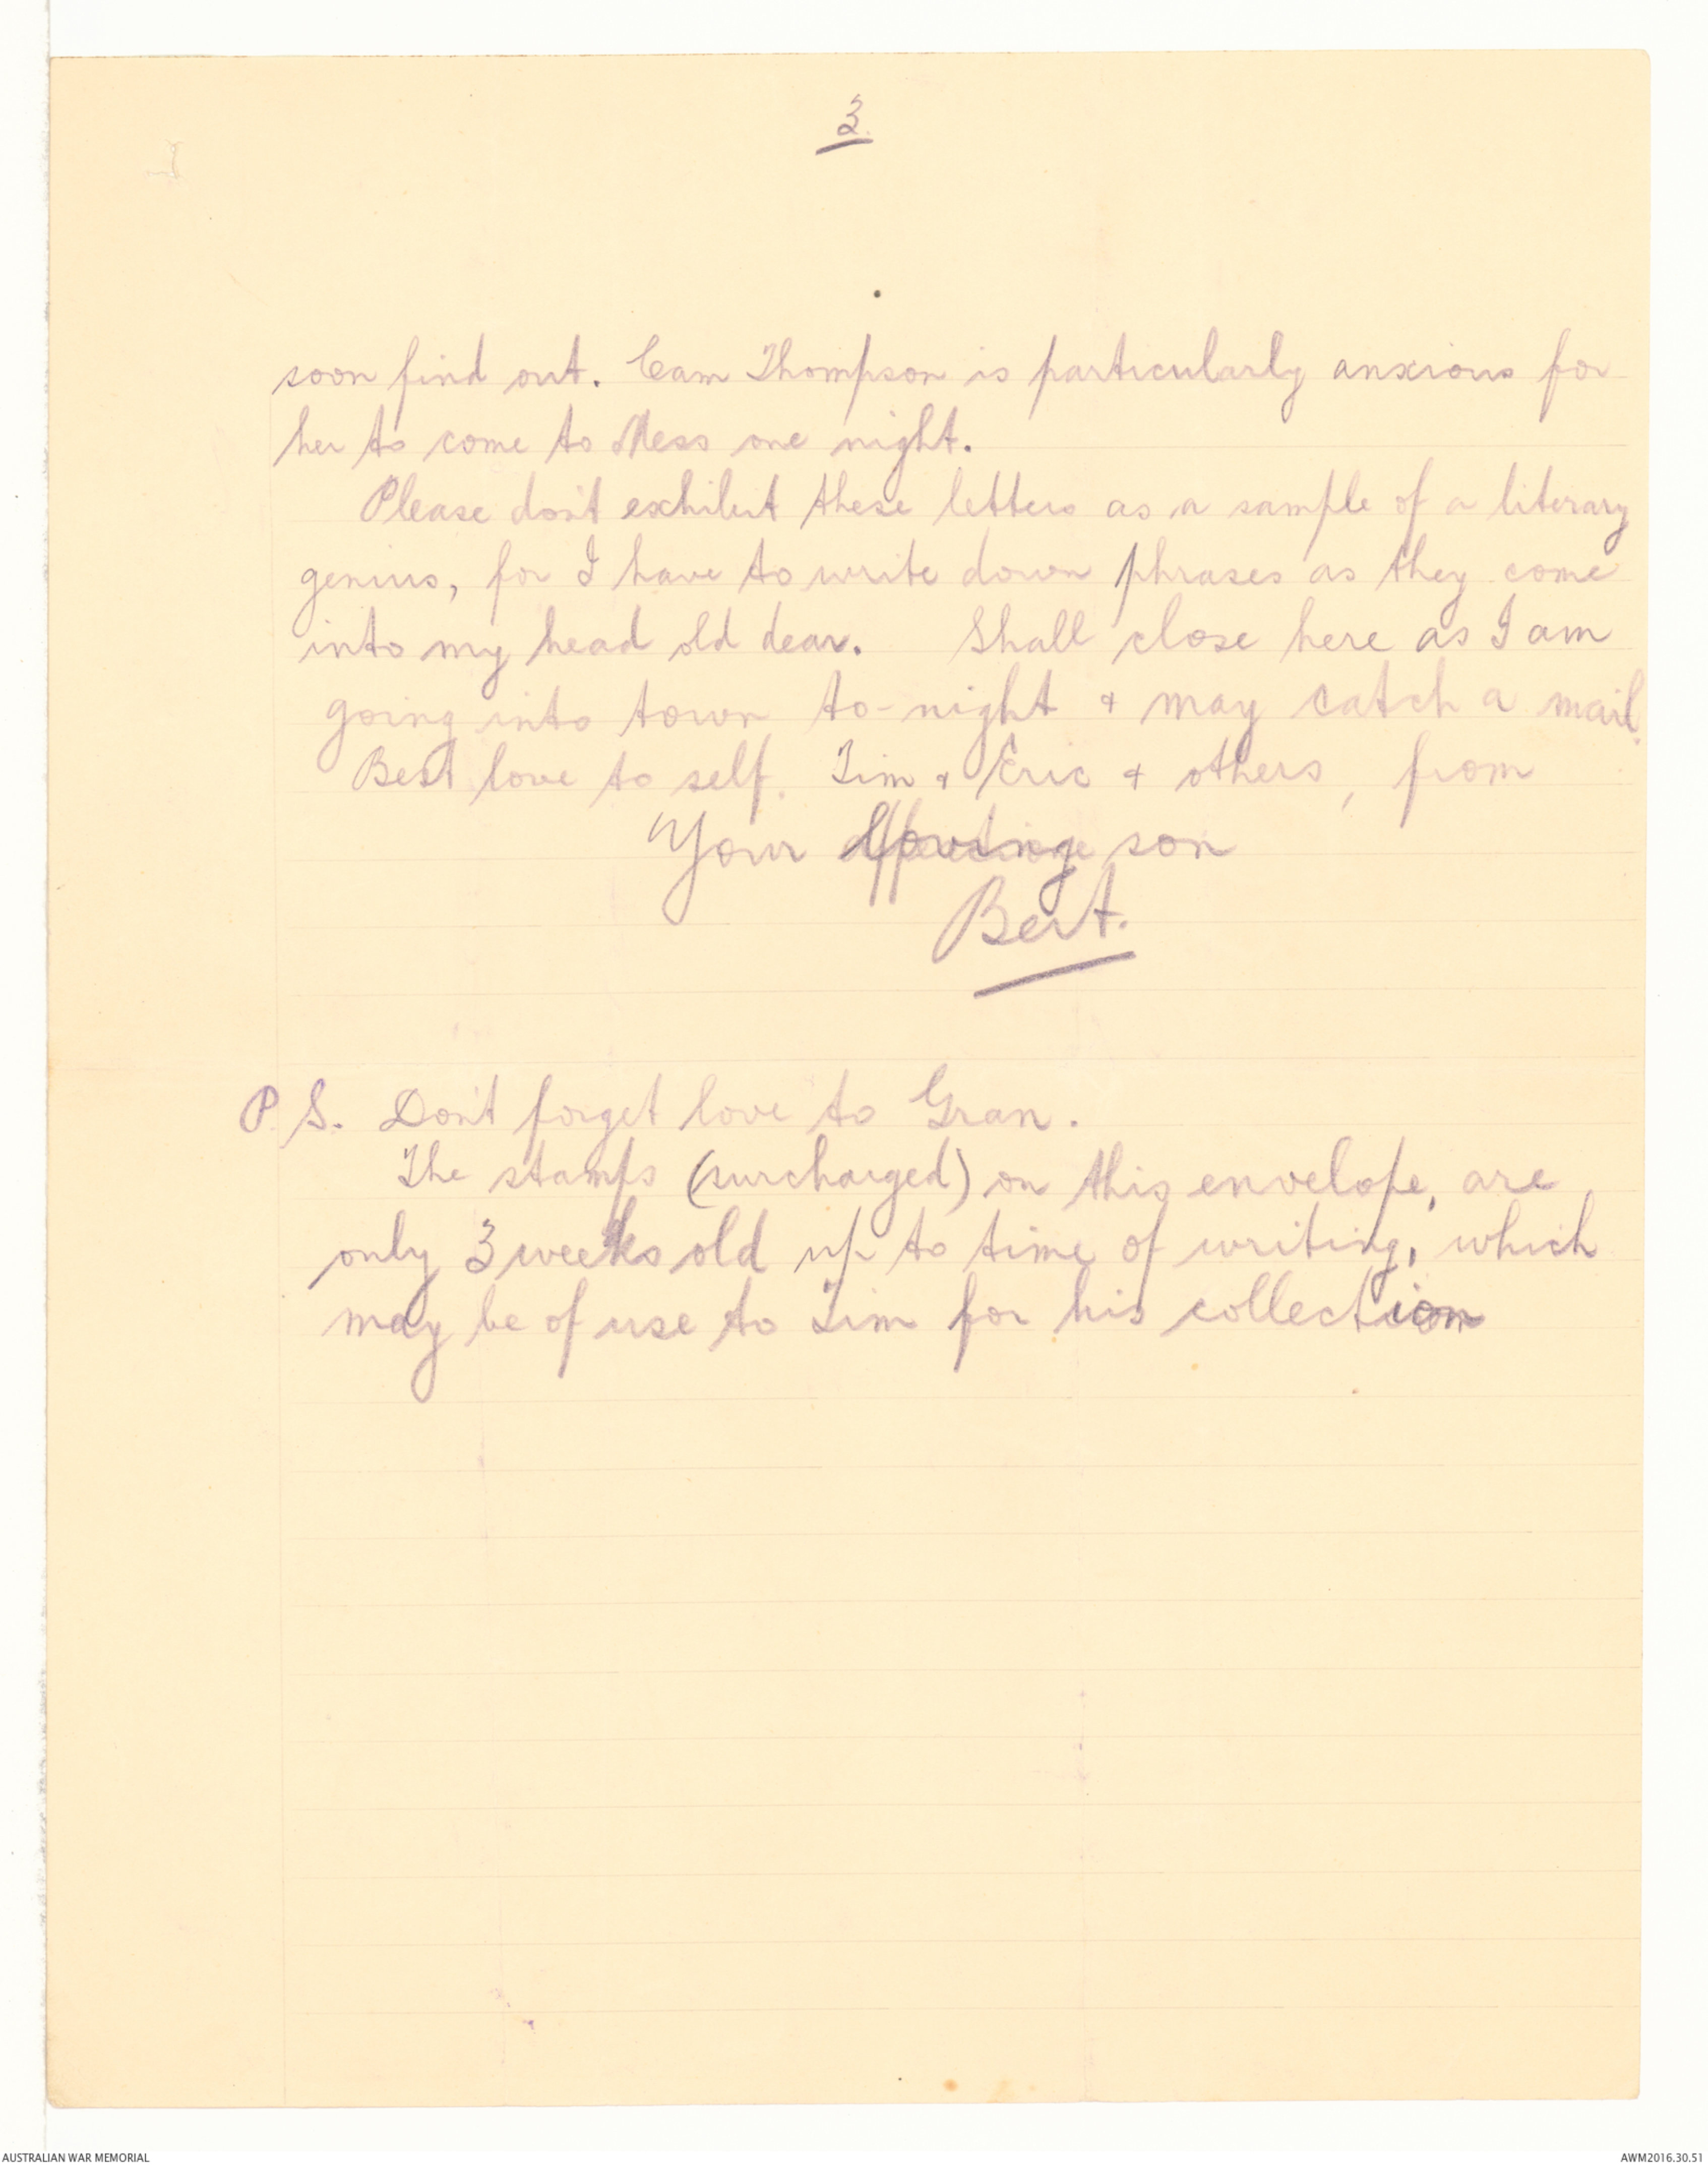 3.
soon find out. Cam Thompson is particularly anxious for
her to come to Mess one night.
Please don't exhibit these letters as a sample of a literary
genius, for I have to write down phrases as they come
into my head old dear. Shall close here as I am
going into town to-night & may catch a mail.
Best love to self. Jim & Eric & others, from
Your son
Bert.
P.S. Don't forget love to Gran.
The stamps (surcharged) on this envelope, are
only 3 weeks old up to time of writing, which
may be of use to Jim for his collection
AUSTRALIAN WAR MEMORIAL
AWM2016.30.51